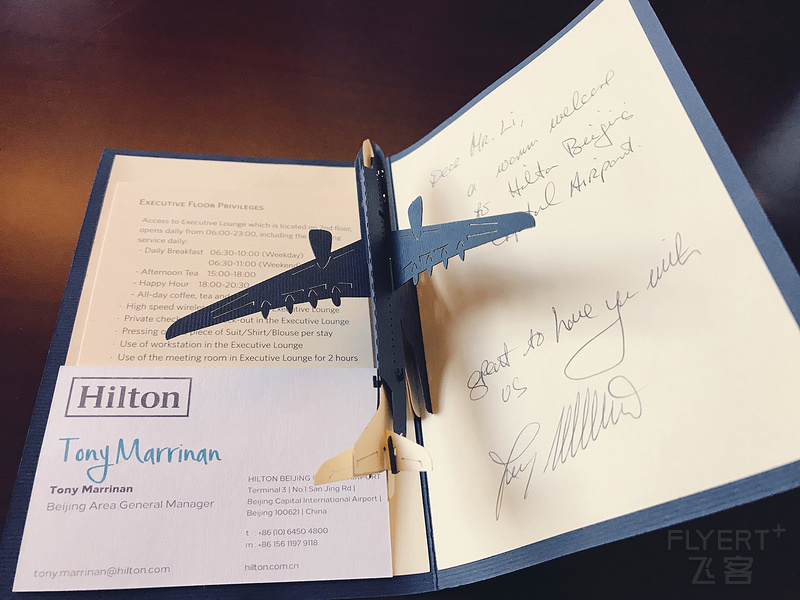 EXECUTIVE FLOOR PRIVILEGES
Access to Executive Lounge which is located on 2nd floor,
opens daily from 06:00-23:00, including the
service daily:
- Daily Breakfast 06:30-10:00 (Weekday)
06:30-11:00 (Weekend
- Afternoon Tea 15:00-18:00
- Happy Hour 18:00-20:30
- All-day coffee, tea and
High speed wireless Executive Lounge
Private check out in the Executive Lounge
Pressing piece of Suit/Shirt/Blouse per stay
Use of workstation in the Executive Lounge
Use of the meeting room in Executive Lounge for 2 hours
Hilton
Tony Marrinan
Tony Marrinan
Beijing Area General Manager
tony.marrinan@hilton.com
HILTON BEIJING
Terminal 3 | No.1 San Jing Rd |
Beijing Capital International Airport |
Beijing 100621 | China
t +86 (10) 6450 4800
m +86 156 1197 9118
hilton.com.cn
Dear Mr. Li,
a warm welcome
to Hilton Beijing
Capital Airport.
great to have you with
us
Tony
FLYERT+
飞客